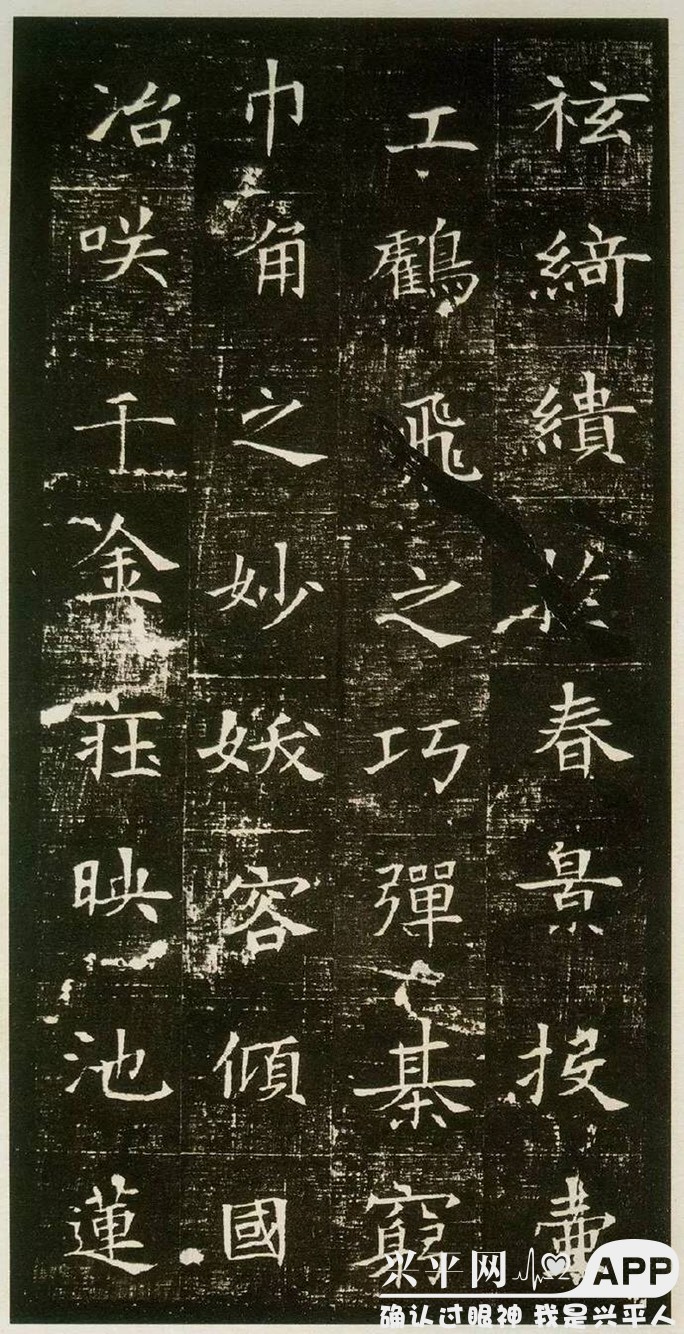 袨綺繢於春景投壺
工鸖飛之巧彈棊窮
巾角之妙妖容傾國
冶咲千金莊映池蓮
兴平网 APP
确认过眼神 我是兴平人